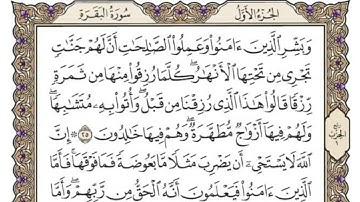 سُورَةُ البَقَرَةِ الجُزْءُ الأَوَّلُ
وَبَشِّرِ ٱلَّذِينَ ءَامَنُوا۟ وَعَمِلُوا۟ ٱلصَّـٰلِحَـٰتِ أَنَّ لَهُمْ جَنَّـٰتٍ
تَجْرِى مِن تَحْتِهَا ٱلْأَنْهَـٰرُ ۖ كُلَّمَا رُزِقُوا۟ مِنْهَا مِن ثَمَرَةٍ
رِّزْقًا ۙ قَالُوا۟ هَـٰذَا ٱلَّذِى رُزِقْنَا مِن قَبْلُ ۖ وَأُتُوا۟ بِهِۦ مُتَشَـٰبِهًا ۖ
وَلَهُمْ فِيهَآ أَزْوَٰجٌ مُّطَهَّرَةٌ ۖ وَهُمْ فِيهَا خَـٰلِدُونَ ۝٢٥ ۞ إِنَّ
ٱللَّهَ لَا يَسْتَحْىِۦٓ أَن يَضْرِبَ مَثَلًا مَّا بَعُوضَةً فَمَا فَوْقَهَا ۚ فَأَمَّا
ٱلَّذِينَ ءَامَنُوا۟ فَيَعْلَمُونَ أَنَّهُ ٱلْحَقُّ مِن رَّبِّهِمْ ۖ وَأَمَّا